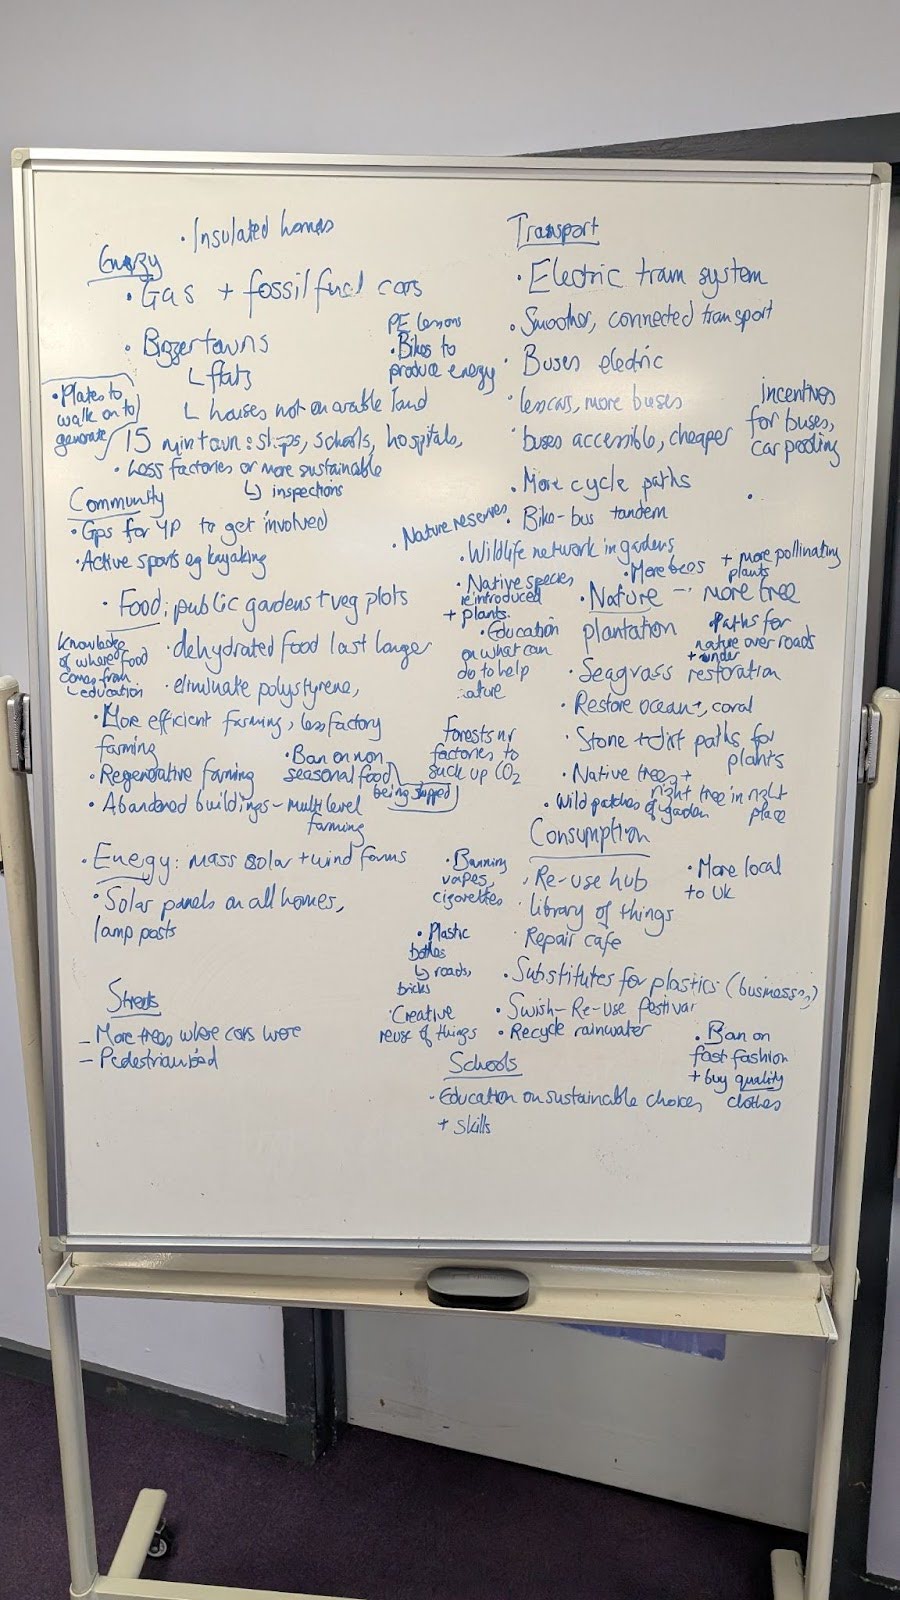 · Insulated homes
Energy
· Gas + fossil fuel cars
· Bigger towns
↳ flats
↳ houses not on arable land
PE lessons
· Bikes to
produce energy
· Plates to
walk on to
generate
15 min town: shops, schools, hospitals,
· Less factories or more sustainable
↳ inspections
Community
· Gps for YP to get involved
· Active sports eg kayaking
· Food: public gardens + veg plots
Knowledge
of where food
comes from.
↳ education
· dehydrated food last longer
· eliminate polystyrene,
· More efficient farming, less factory
farming
· Regenerative farming
· Ban on non
seasonal food
being shipped
· Abandoned buildings – multi level
farming
· Energy: mass solar + wind farms
· Solar panels on all homes,
lamp posts
Streets
– More trees where cars were
– Pedestrianised
Transport
· Electric tram system
· Smoother, connected transport
· Buses electric
· less cars, more buses
buses accessible, cheaper
incentives
for buses,
car pooling
· More cycle paths
· Bike-bus tandem
· Nature reserves
· Wildlife network in gardens
· Native species
reintroduced
+ plants.
· More bees
+ more pollinating
plants
· Nature – more tree
plantation
· Education
on what can
do to help
nature
· Paths for
nature over roads
+ under
· Seagrass restoration
· Restore ocean, coral
· Stone + dirt paths for
plants
Forests nr
factories to
suck up CO2
· Native trees +
right tree in right
place
· Wild patches of garden
Consumption
· Banning
vapes,
cigarettes
· Re-use hub
· library of things
Repair cafe
· More local
to UK
· Plastic
bottles
↳ roads,
bricks
· Substitutes for plastics (businesses)
· Swish – Re-use festival
· Creative
reuse of things
· Recycle rainwater
· Ban on
fast fashion
+ buy quality
clothes
Schools
· Education on sustainable choices
+ skills